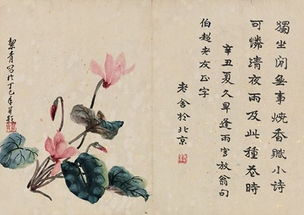 獨坐閑無事燒香賦小詩
可憐清夜雨及此種花時
辛丑夏久旱逢雨寫放翁句
伯超老友正字
老舍於北京
絜青寫於丁巳年